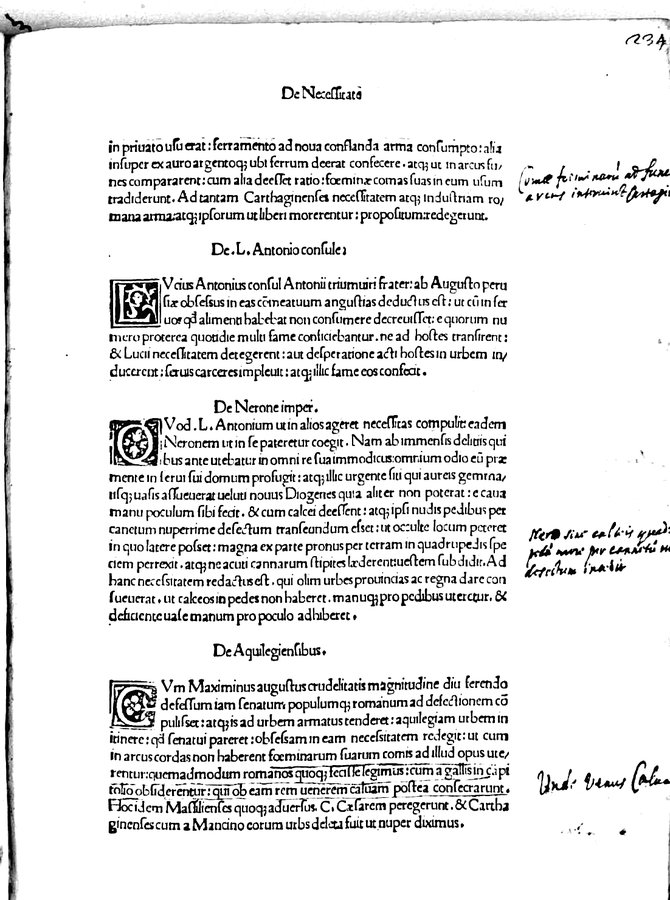 234
De Necessitate
in priuato usu erat: ferramento ad noua conflanda arma consumpto: alia
insuper ex auro argentoq; ubi ferrum deerat confecere. atq; ut in arcus fu/
nes compararent: cum alia deesset ratio: fœminæ comas suas in eum usum
tradiderunt. Ad tantam Carthaginenses necessitatem atq; industriam ro/
mana arma: atq; ipsorum ut liberi morerentur: propositum: redegerunt.
De. L. Antonio consule:
LVcius Antonius consul Antonii triumuiri frater: ab Augusto peru
siæ obsessus in eas cõmeatuum angustias deductus est: ut cũ in ser
uos qđ alimenti habebat non consumere decreuisset: e quorum nu
mero proterea quotidie multi fame conficiebantur. ne ad hostes transirent:
& Lucii necessitatem detegerent: aut desperatione acti hostes in urbem in/
ducerent: seruis carceres impleuit: atq; illic fame eos confecit.
De Nerone imper.
QVod. L. Antonium ut in alios ageret necessitas compulit: eadem
Neronem ut in se pateretur coegit. Nam ab immensis delitiis qui
bus ante utebatur in omni re sua immodicus: omnium odio eũ præ
mente in serui sui domum profugit: atq; illic urgente siti qui aureis gemma/
tisq; uasis assueuerat ueluti nouus Diogenes quia aliter non poterat: e caua
manu poculum sibi fecit. & cum calcei deessent: atq; ipsi nudis pedibus per
cannetum nuperrime desectum transeundum esset: ut occulte locum peteret
in quo latere posset: magna ex parte pronus per terram in quadrupedis spe
ciem perrexit. atq; ne acuti cannarum stipites læderent uestem subdidit. Ad
hanc necessitatem redactus est. qui olim urbes prouincias ac regna dare con
sueuerat. ut calceos in pedes non haberet. manuq; pro pedibus uteretur. &
deficiente uase manum pro poculo adhiberet.
De Aquilegiensibus.
CVm Maximinus augustus crudelitatis magnitudine diu ferendo
defessum iam senatum populumq; romanum ad defectionem cõ
pulisset: atq; is ad urbem armatus tenderet: aquilegiam urbem in
itinere: qđ senatui pareret: obsessam in eam necessitatem redegit: ut cum
in arcus cordas non haberent fœminarum suarum comis ad illud opus ute/
rentur: quemadmodum romanos quoq; fecisse legimus: cum a gallis in capi
tolio obsiderentur: qui ob eam rem uenerem caluam postea consecrarunt.
Hoc idem Massilienses quoq; aduersus. C. Cæsarem peregerunt. & Cartha
ginenses cum a Mancino eorum urbs deleta fuit ut nuper diximus.
Nero sine calceis quad
Unde Venus Calua